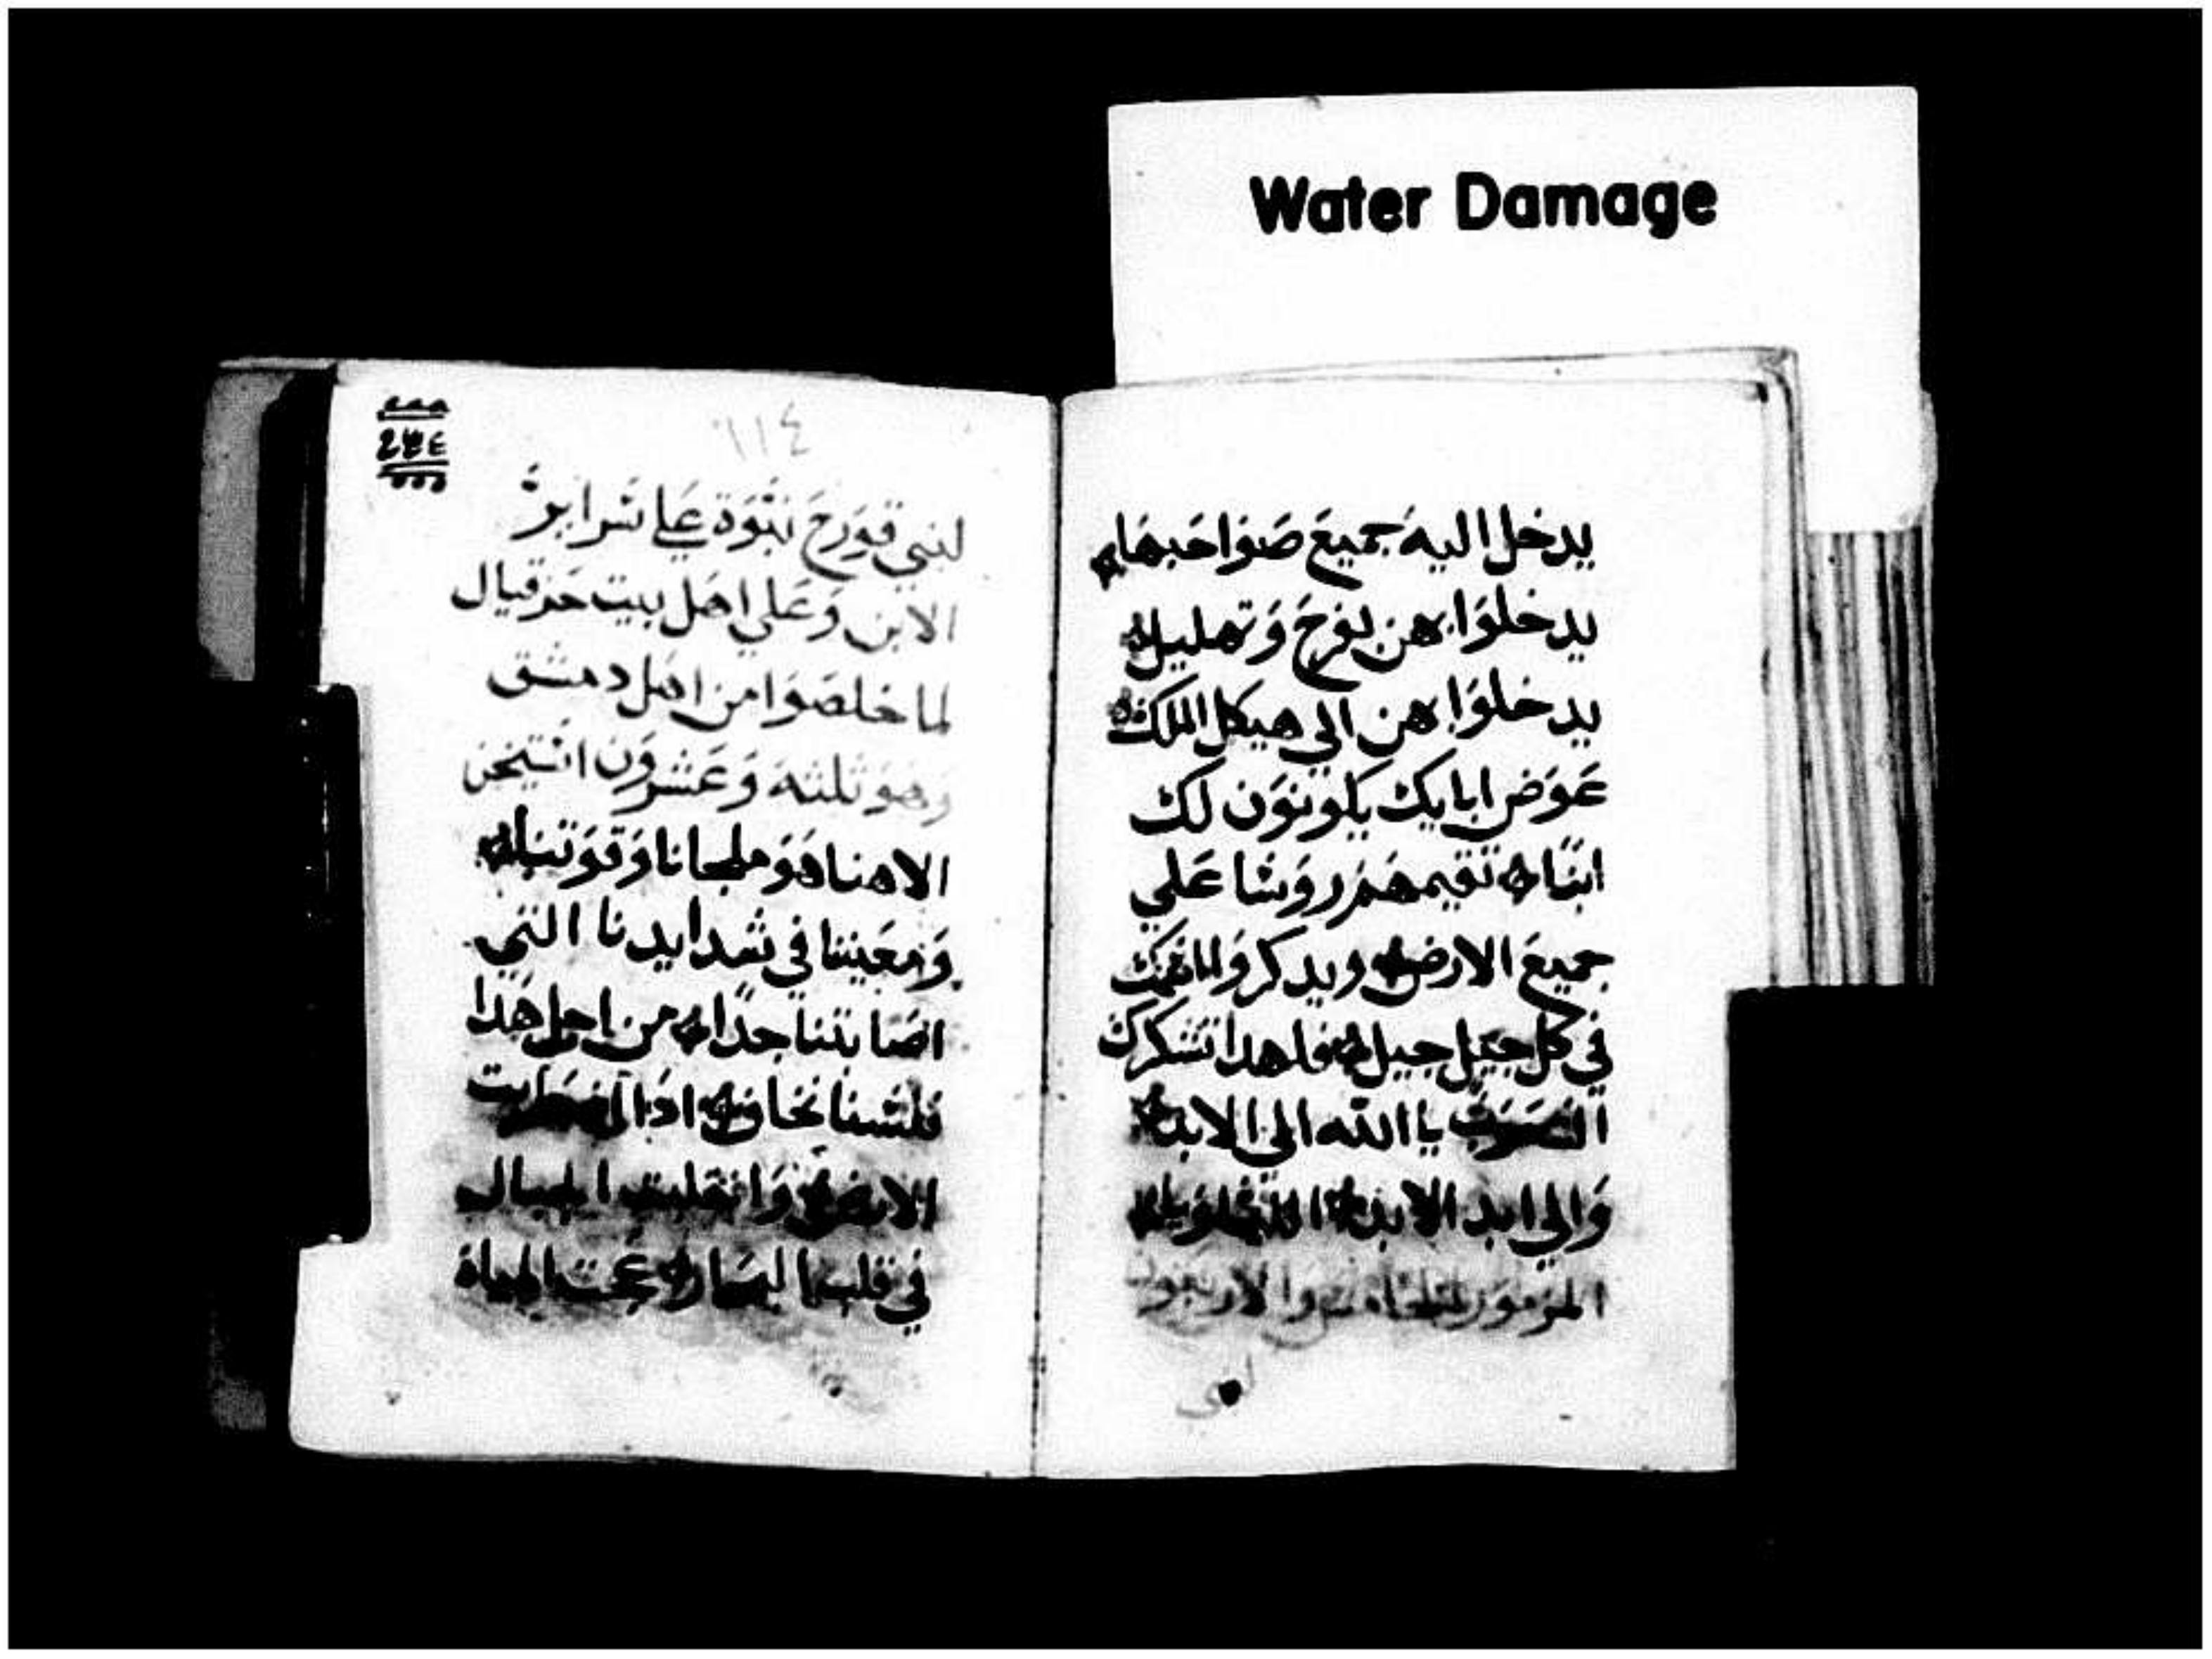 Water Damage
يدخل اليه جميع صواحبها
يدخلوا هن بفرح وتهليل
يدخلوا هن الي هيكل الملك
عوض ابايك يكونون لك
ابنا تقيمهم روسا علي
جميع الارض ويدكروا اسمك
في كل جيل جيل فلهدا تشكرك
الشعوب يا الله الي الابد
والي ابد الابد الليلويا
المزمور الخامس والاربعون
لبني
١١٤
لبني قورح نبوة علي سراير
الابن وعلي اهل بيت حزقيال
لما خلصوا من اهل دمشق
وهو ثلثه وعشرون استيخن
الاهنا هو ملجانا وقوتنا
ومعيننا في شدايدنا التي
اصابتنا جدا من اجل هدا
فلسنا نخاف ادا اضطربت
الارض وانقلبت الجبال
في قلب البحار عجت المياه